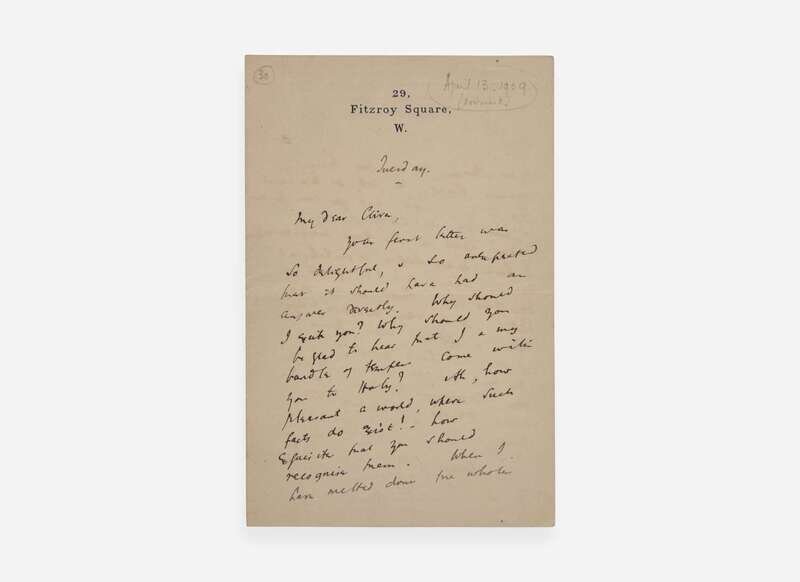 30
April 13-1909
29,
Fitzroy Square,
W.
Tuesday.
My Dear Clive,
Your first letter was
so delightful, & so unexpected
that it should have had an
answer directly. Why should
I excite you? Why should you
be glad to hear that I & my
bundle of tempers come with
you to Italy? Ah, how
pleasant a world, where such
facts do exist! - how
exquisite that you should
recognise them. When I
have melted down the whole